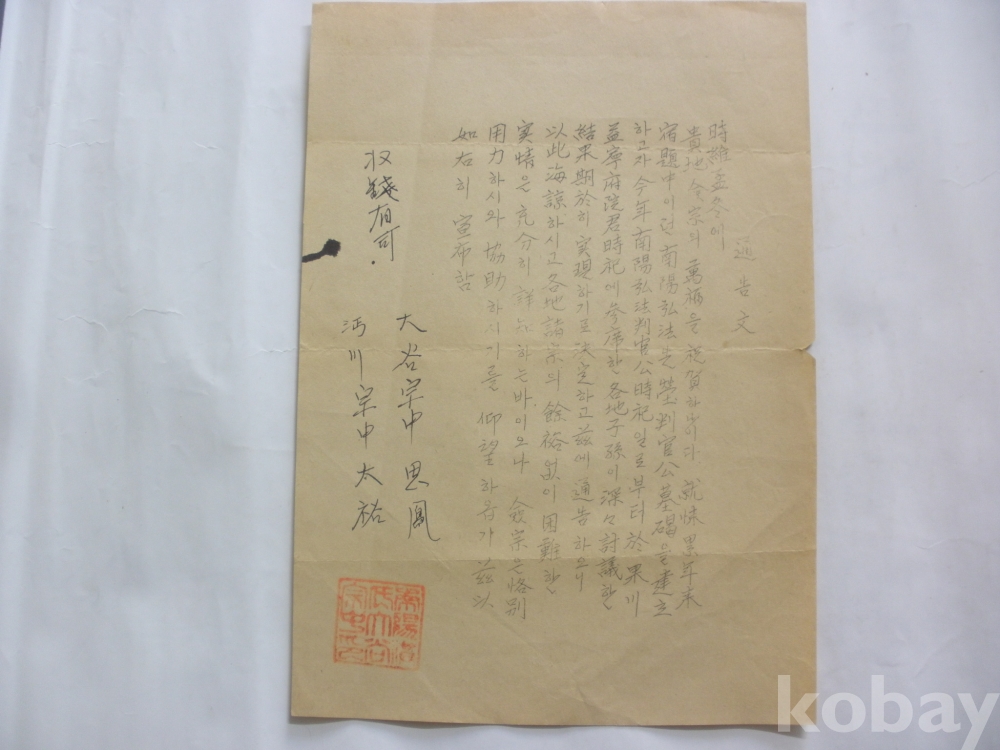 通告文
時維孟冬에
貴地 僉宗의 萬福을 祝賀하나이다 就悚 累年來
宿題中이던 南陽弘法 判官公墓碣을 建立
하고자 今年 南陽弘法判官公時祀日로부터 於果川
益寧府院君時祀에 參席한 各地子孫이 深々討議한
結果 期於히 実現하기로 決定하고 玆에 通告하오니
以此海諒하시고 各地諸宗의 餘裕없이 困難한
実情은 充分히 詳하는바이오나 僉宗은 恪別
用力하시와 協助하시기를 仰望하옵기 玆以
如右히 宣布함
收錢有司
大谷宗中 思鳳
沔川宗中 太裕
南陽洪
氏大谷
宗中印
kobay